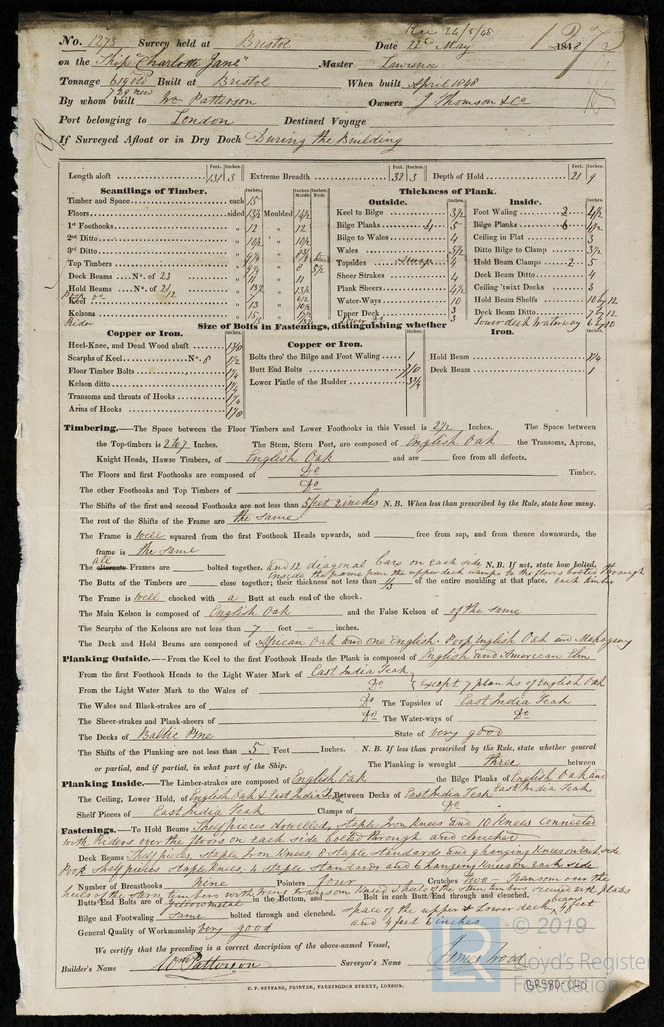 Rec 24/5/48
No. 1273 Survey held at Bristol Date 22d May 1848 1273
on the Ship "Charlotte Jane" Master Lawrence
Tonnage 619 old Built at Bristol When built April 1848
729 new
By whom built Wm Patterson Owners J Thomson & Co
Port belonging to London Destined Voyage
If Surveyed Afloat or in Dry Dock During the Building
Feet. Inches. Feet. Inches. Feet. Inches.
Length aloft 131 3 Extreme Breadth 32 3 Depth of Hold 21 9
Scantlings of Timber. Thickness of Plank.
Outside. Inside.
Timber and Space each 15
Floors sided 13½ Moulded 14½
1st Foothooks 12 12
2nd Ditto 10½ 10½
3rd Ditto
Top Timbers
Deck Beams No. of 23
Hold Beams No. of 21
Keel
Kelsons
Rider
Keel to Bilge 3½
Bilge Planks 4 5
Bilge to Wales 4
Wales 5½
Topsides 4
Sheer Strakes 4
Plank Sheers 4½
Water-Ways 10
Upper Deck 3
Foot Waling 2 4½
Bilge Planks 6 4½
Ceiling in Flat 3
Ditto Bilge to Clamp 3½
Hold Beam Clamps 2 5
Deck Beam Ditto 4
Ceiling 'twixt Decks 3
Hold Beam Shelfs 10 by 12
Deck Beam Ditto 7 by 12
Lower deck Waterway 6 by 10
Size of Bolts in Fastenings, distinguishing whether
Copper or Iron. Copper or Iron. Iron.
Heel-Knee, and Dead Wood abaft 1 3/10
Scarphs of Keel No. 8 1½
Floor Timber Bolts 1¼
Kelson ditto 1¼
Transoms and throats of Hooks 1¼
Arms of Hooks
Bolts thro' the Bilge and Foot Waling 1
Butt End Bolts
Lower Pintle of the Rudder 3¾
Hold Beam 1¼
Deck Beam 1
Timbering.—The Space between the Floor Timbers and Lower Foothooks in this Vessel is 2½ Inches. The Space between
the Top-timbers is 2 to 7 Inches. The Stem, Stern Post, are composed of English Oak the Transoms, Aprons,
Knight Heads, Hawse Timbers, of English Oak and are free from all defects.
The Floors and first Foothooks are composed of Do Timber.
The other Foothooks and Top Timbers of Do
The Shifts of the first and second Foothooks are not less than 5 feet 2 inches N. B. When less than prescribed by the Rule, state how many.
The rest of the Shifts of the Frame are the same
The Frame is well squared from the first Foothook Heads upwards, and free from sap, and from thence downwards, the
frame is the same
The all alternate Frames are bolted together. and 12 diagonal bars on each side N. B. If not, state how bolted.
inside the frame from the upper deck clamps to the floors bolted through each timber
The Butts of the Timbers are close together; their thickness not less than 1/3 of the entire moulding at that place.
The Frame is well chocked with a Butt at each end of the chock.
The Main Kelson is composed of English Oak and the False Kelson of of the same
The Scarphs of the Kelsons are not less than 7 feet inches.
The Deck and Hold Beams are composed of African Oak and one English. Poop English Oak and Mahogany
Planking Outside.—From the Keel to the first Foothook Heads the Plank is composed of English and American Elm
From the first Foothook Heads to the Light Water Mark of East India Teak
From the Light Water Mark to the Wales of Do except 7 planks of English Oak
The Wales and Black-strakes are of Do The Topsides of East India Teak
The Sheer-strakes and Plank-sheers of Do The Water-ways of Do
The Decks of Baltic Pine State of very good
The Shifts of the Planking are not less than 5 Feet Inches. N. B. If less than prescribed by the Rule, state whether general
or partial, and if partial, in what part of the Ship. The Planking is wrought three between
Planking Inside.—The Limber-strakes are composed of English Oak the Bilge Planks of English Oak and
East India Teak
The Ceiling, Lower Hold, of English Oak & East India Teak Between Decks of East India Teak
Shelf Pieces of East India Teak Clamps of Do
Fastenings.—To Hold Beams Shelf pieces dowelled, Staple Iron Knees and 10 Knees connected
with Riders over the floors on each side bolted through and clenched
Deck Beams Shelf pieces, Staple Iron Knees, 8 Staple Standards and 9 hanging Knees on each side.
Poop Shelf pieces Staple Knees, 4 Staple Standards and 6 hanging Knees on each side
Number of Breasthooks nine Pointers four Crutches two - Transom over the
heels of the stern timbers with wing transom kneed & heels of the stern timbers secured with plates
Butts End Bolts are of Yellow metal in the Bottom, and Bolt in each Butt End through and clenched.
Bilge and Footwaling same bolted through and clenched. Space of the upper & Lower deck beams 4 feet
and 4 feet 6 inches
General Quality of Workmanship very good
We certify that the preceding is a correct description of the above-named Vessel,
Builder's Name Wm Patterson Surveyor's Name James Wood
C. F. SEYFANG, PRINTER, FARRINGDON STREET, LONDON.
BRS80-040
LR © 2019
Lloyd's Register
Foundation